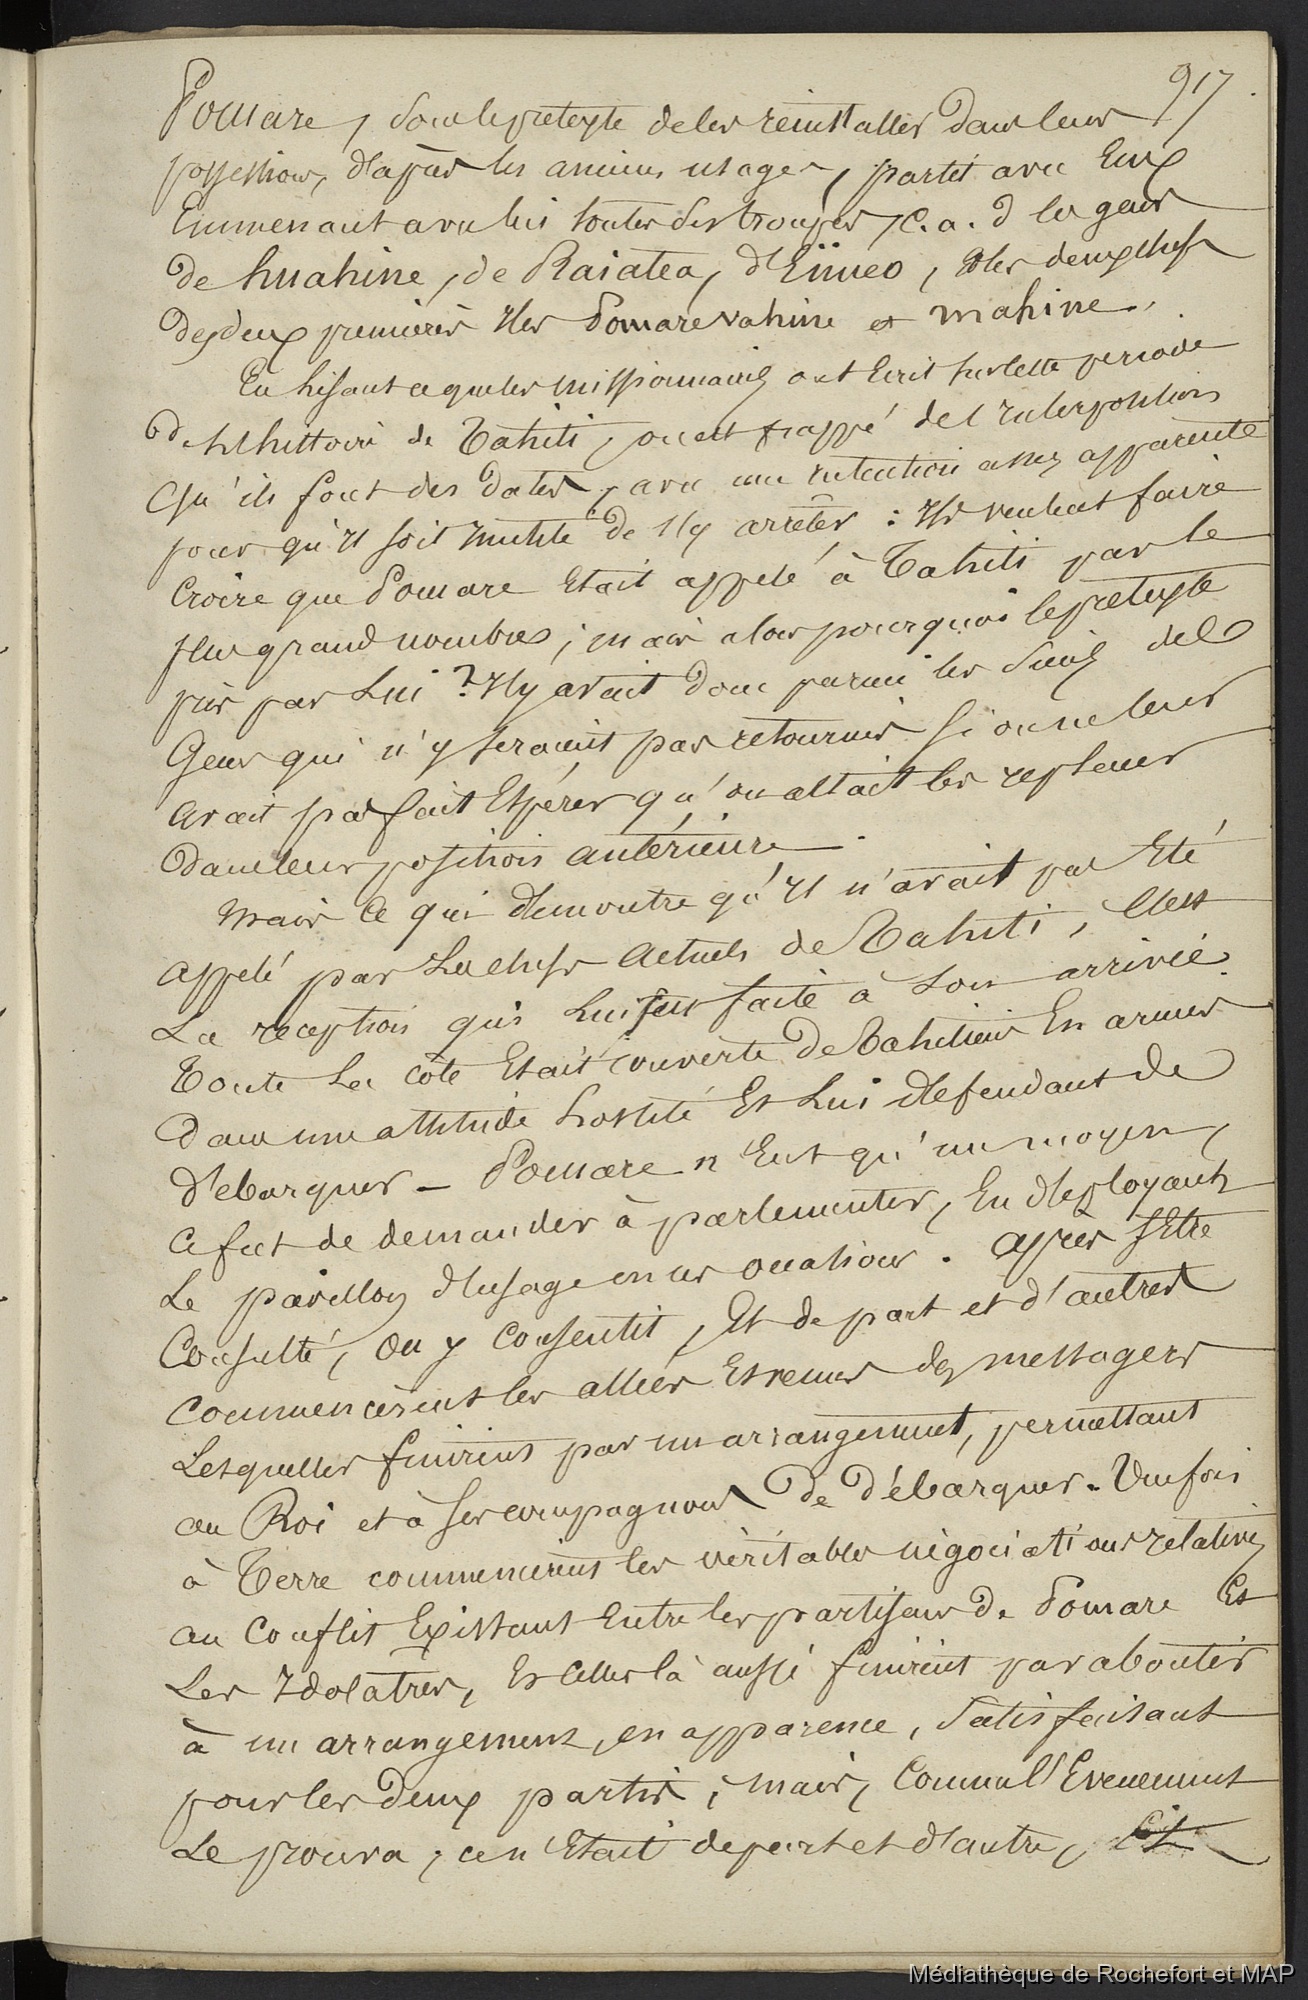 917
Pomare, sous le pretexte de les réinstaller dans leurs
possessions, d'après les anciens usages, partit avec Eux
Emmenant avec lui toutes ses troupes, c. a. d les gens
de huahine, de Raiatea, d'Eïmeo, & les deux chefs
des deux premières Iles Pomarevahine et mahine.
En lisant ce que les missionnaires ont Ecrit sur cette periode
de l'histoire de Tahiti, on est frappé des interpositions
qu'ils font des dates, avec une intention assez apparente
pour qu'il soit inutile de s'y arrêter : Ils veulent faire
Croire que Pomare Etait appelé à Tahiti par le
plus grand nombre ; mais alors pourquoi le pretexte
pris par Lui ? Il y avait donc parmi les Siens des
Gens qui n'y seraient pas retournés si on ne leur
avait pas fait Espérer qu'on allait les replacer
dans leur position antérieure.
Mais ce qui demontre qu'il n'avait pas Eté
appelé par Les chefs actuels de Tahiti, c'est
La reception qui Lui fut faite à son arrivée.
Toute La côte Etait couverte de Tahitiens En armes
Dans une attitude hostile Et Lui defendant de
débarquer — Pomare n'Eut qu'un moyen,
ce fut de demander à parlementer, En deployant
Le pavillon d'usage en ces occasions. Après s'Etre
Consulté, on y consentit, Et de part et d'autres
commencèrent les allées Et venues des messagers
Lesquelles finirent par un arrangement, permettant
au Roi et à ses compagnons de débarquer. Une fois
à Terre commencèrent les véritables négociations relatives
au Conflit Existant Entre les partisans de Pomare Et
Les Idolatres, Et Celles là aussi finirent par aboutir
à un arrangement, en apparence, Satisfaisant
pour les deux partis ; mais, comme l'Evenement
Le prouva, ce n'Etait de part et d'autre,
Médiathèque de Rochefort et MAP